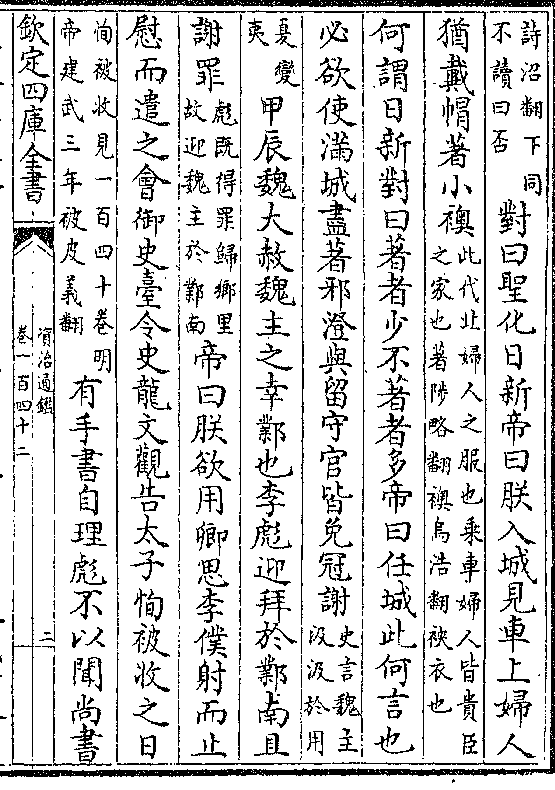 詩沼翻下同
不讀曰否
對曰聖化日新帝曰朕入城見車上婦人
猶戴帽著小襖
此代北婦人之服也乘車婦人皆貴臣
之家也著陟略翻襖烏浩翻袂衣也
何謂日新對曰著者少不著者多帝曰任城此何言也
必欲使滿城盡著邪澄與留守官皆免冠謝
史言魏主
汲汲於用
夏變
夷
甲辰魏大赦魏主之幸鄴也李彪迎拜於鄴南且
謝罪
彪既得罪歸鄉里
故迎魏主於鄴南
帝曰朕欲用卿思李僕射而止
慰而遣之會御史臺令史龍文觀告太子恂被收之日
恂被收見一百四十卷明
帝建武三年被皮義翻
有手書自理彪不以聞尚書
欽定四庫全書
資治通鑑
卷一百四十二
二